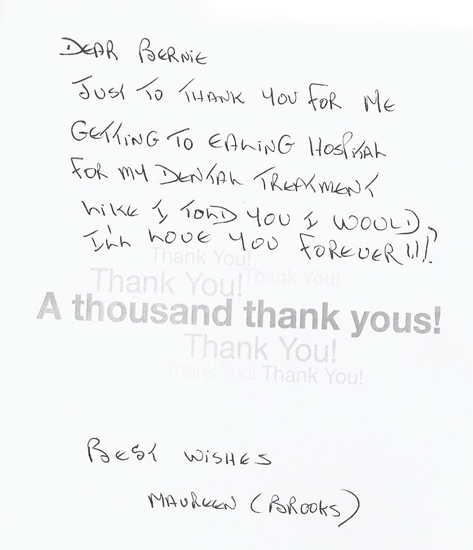 DEAR BERNIE
JUST TO THANK YOU FOR ME
GETTING TO EALING HOSPITAL
FOR MY DENTAL TREATMENT
LIKE I TOLD YOU I WOULD,
I'LL LOVE YOU FOREVER!!!
Thank You!
Thank You! Thank You!
A thousand thank yous!
Thank You!
Thank You! Thank You!
BEST WISHES
MAUREEN (BROOKS)